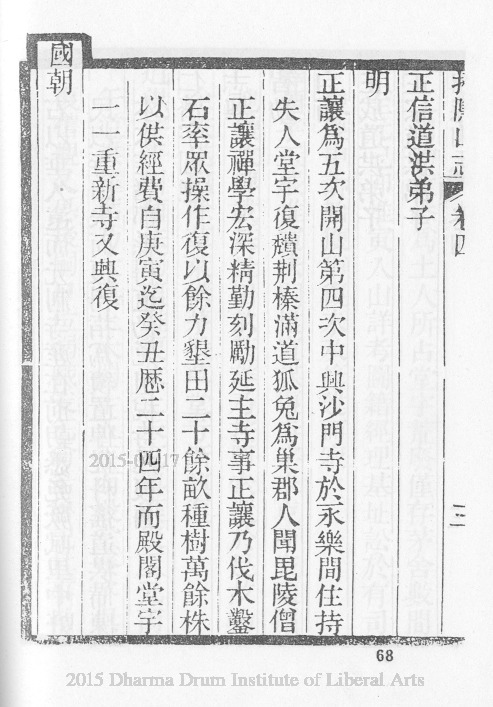 卷四
三
正信道洪弟子
明
正讓爲五次開山第四次中興沙門寺於永樂間住持
失人堂宇復穨荆榛滿道狐兔爲巢郡人聞毘陵僧
正讓禪學宏深精勤刻勵延主寺事正讓乃伐木鑿
石率眾操作復以餘力墾田二十餘畝種樹萬餘株
以供經費自庚寅迄癸丑歴二十四年而殿閣堂宇
一一重新寺又興復
國朝
68
2015 Dharma Drum Institute of Liberal Arts